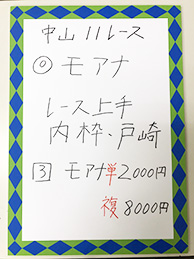 中山11レース
◎モアナ
レース上手
内枠・戸崎
3 モアナ単2000円
複8000円